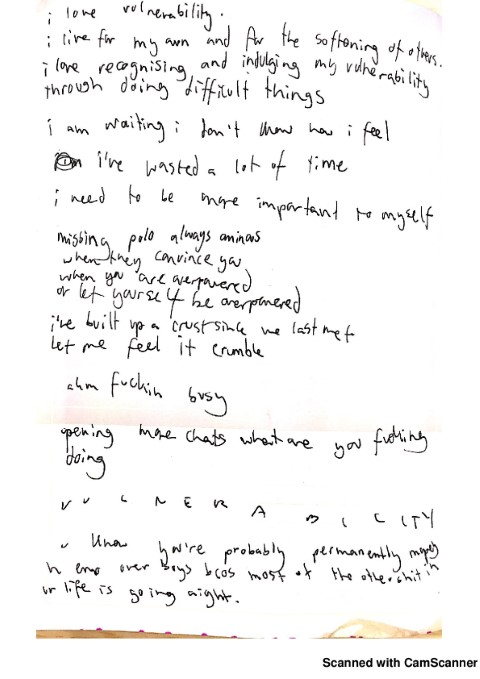 i love vulnerability.
i live for my own and for the softening of others.
i love recognising and indulging my vulnerability
through doing difficult things
i am waiting i don't know how i feel
i've wasted a lot of time
i need to be more important to myself
missing polo always
when they convince you
when you are overpowered
or let yourself be overpowered
i've built up a crust since we last met
let me feel it crumble
ahm fuckin busy
opening more chats what are you fucking
doing
V U L N E R A B I L ITY
u know you're probably permanently
n emo over boys bcos most of the other shit in
ur life is going aight.
Scanned with CamScanner